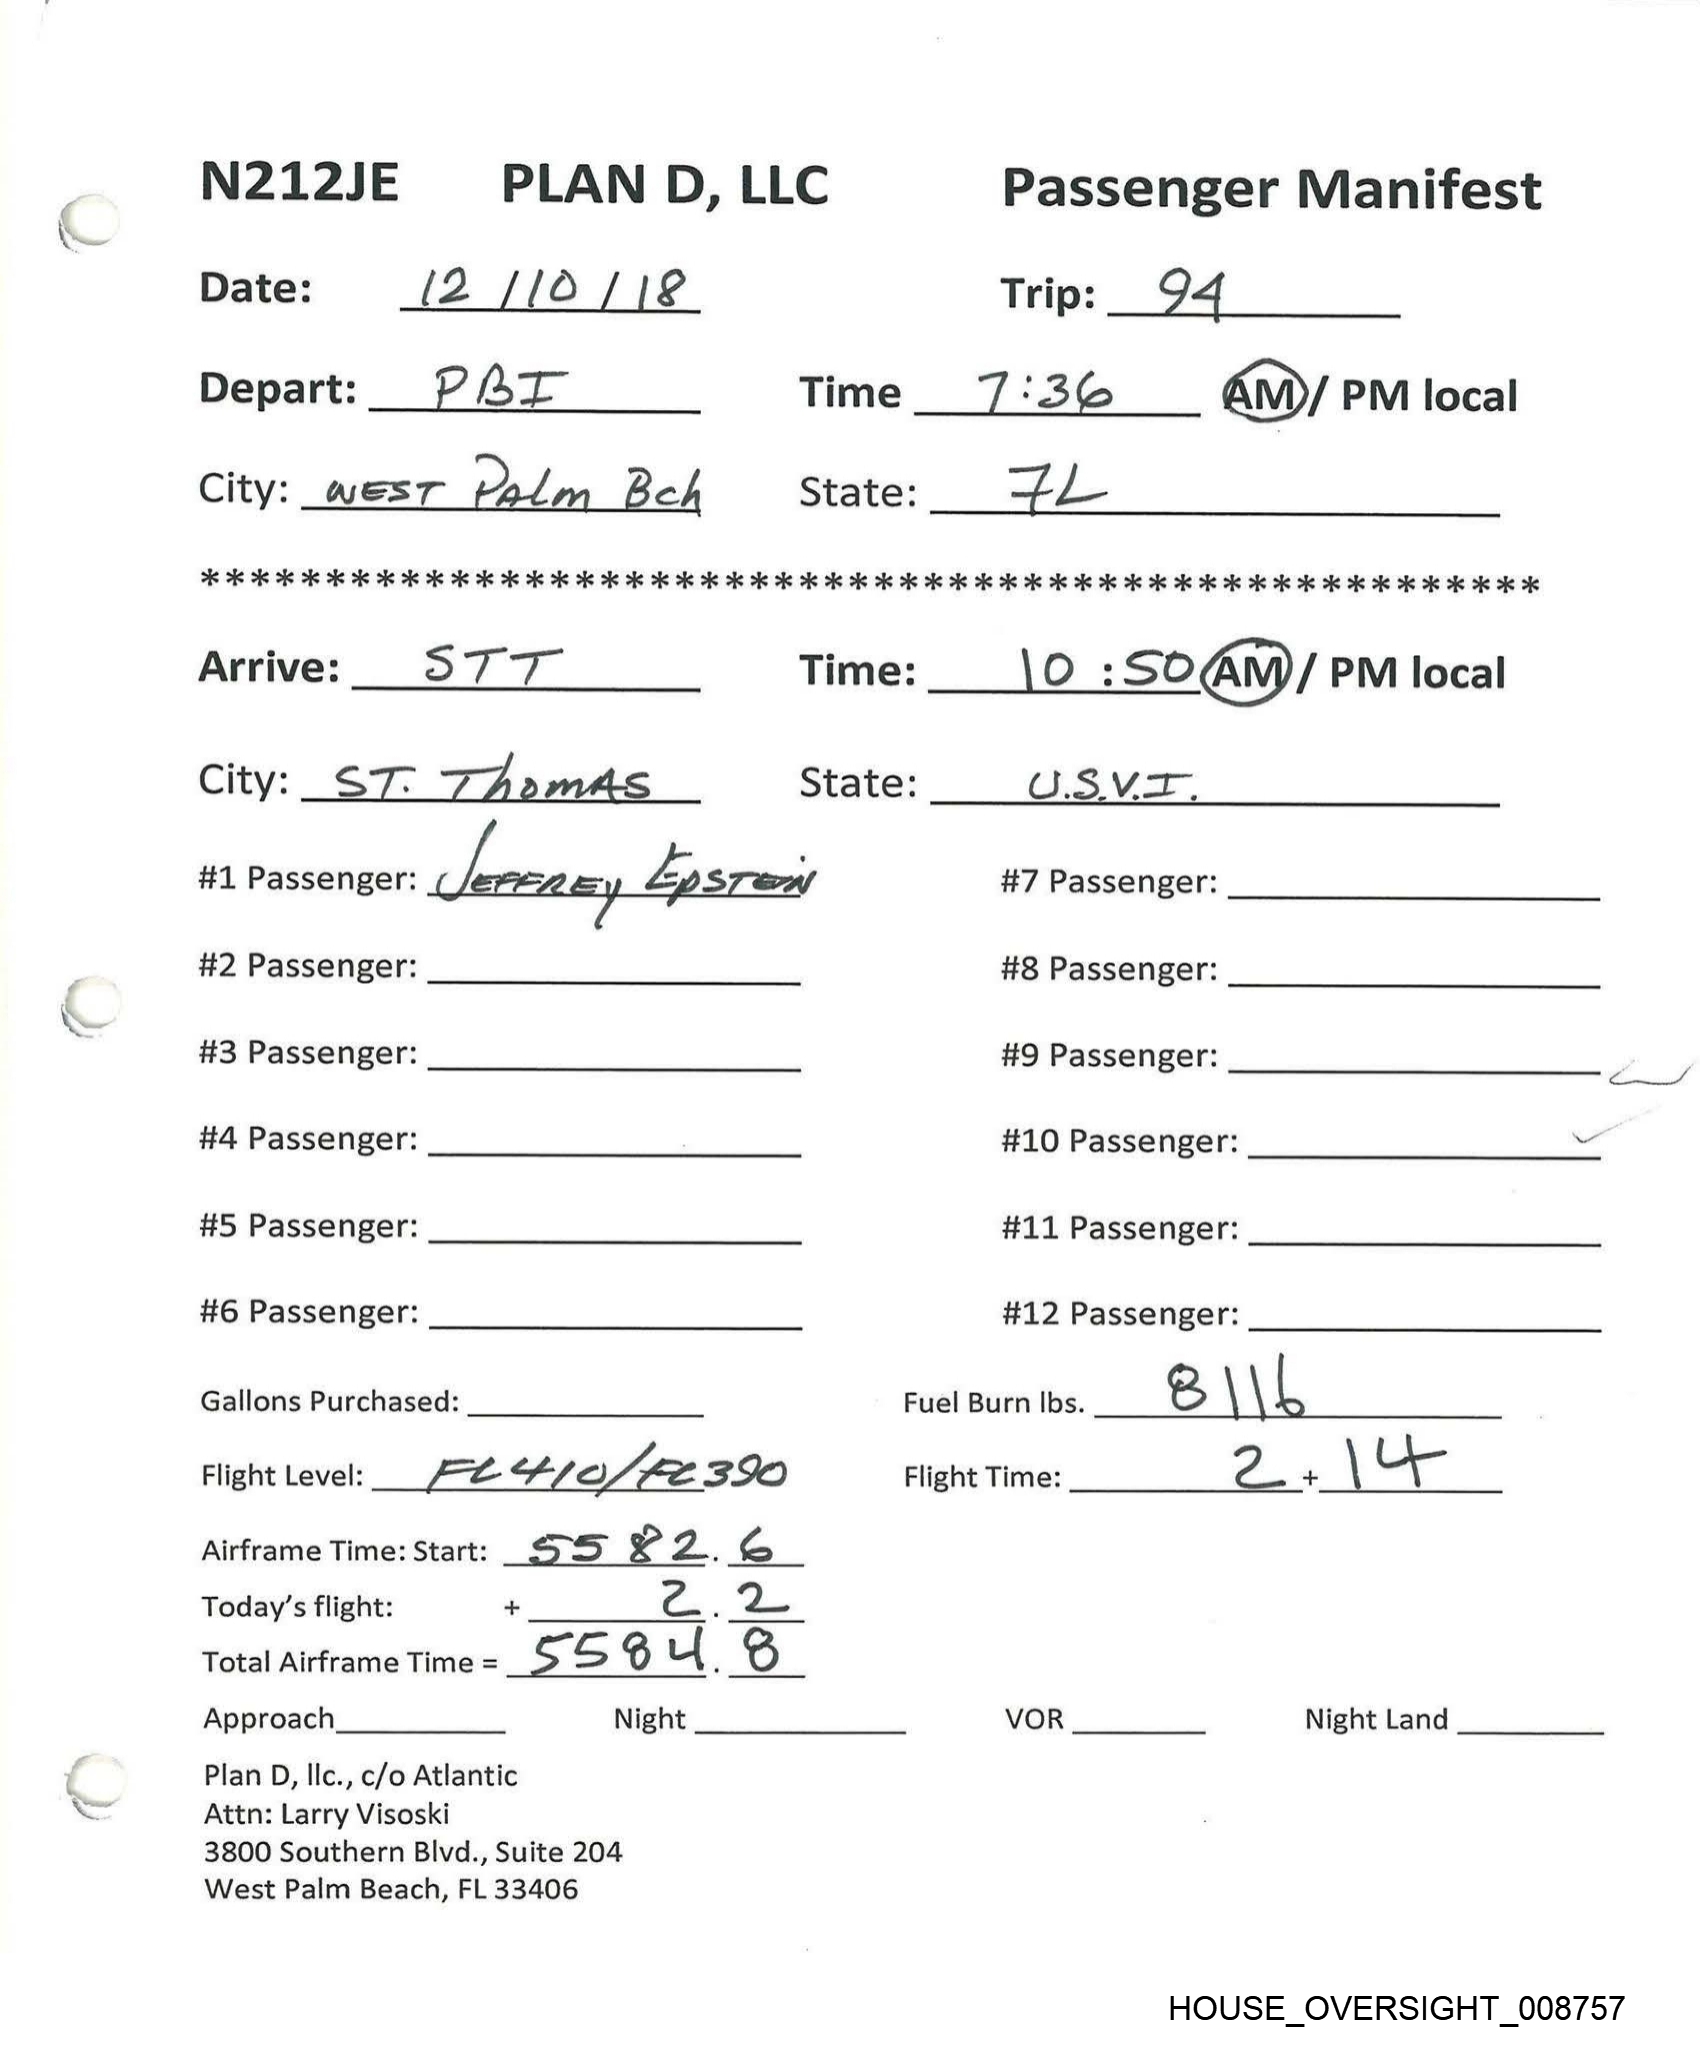 N212JE PLAN D, LLC Passenger Manifest
Date: 12/10/18 Trip: 94
Depart: PBI Time 7:36 AM / PM local
City: WEST Palm Bch State: FL
******************************************************
Arrive: STT Time: 10:50 AM / PM local
City: ST. Thomas State: U.S.V.I.
#1 Passenger: JEFFREY EPSTEIN #7 Passenger:
#2 Passenger: #8 Passenger:
#3 Passenger: #9 Passenger:
#4 Passenger: #10 Passenger:
#5 Passenger: #11 Passenger:
#6 Passenger: #12 Passenger:
Gallons Purchased: Fuel Burn lbs. 8116
Flight Level: FL410/FL390 Flight Time: 2 + 14
Airframe Time: Start: 5582.6
Today's flight: + 2.2
Total Airframe Time = 5584.8
Approach Night VOR Night Land
Plan D, llc., c/o Atlantic
Attn: Larry Visoski
3800 Southern Blvd., Suite 204
West Palm Beach, FL 33406
HOUSE_OVERSIGHT_008757